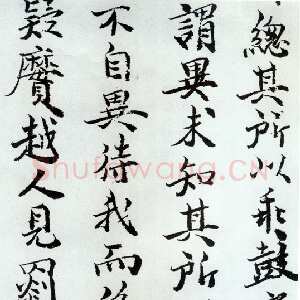 總其所以乖鼓
謂異未知其所
不自異待我而後
疑黂越人見罽
Shufawang.CN